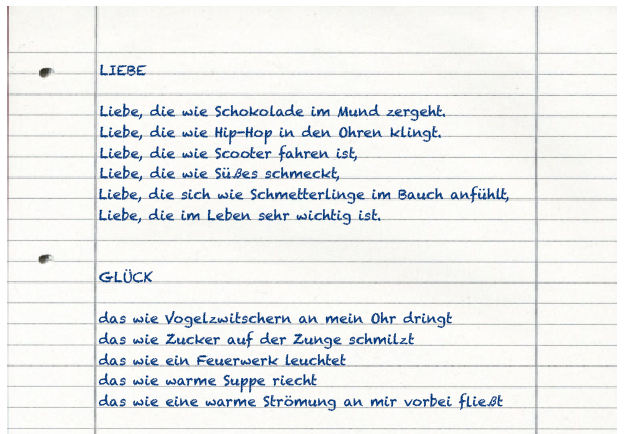 LIEBE
Liebe, die wie Schokolade im Mund zergeht.
Liebe, die wie Hip-Hop in den Ohren klingt.
Liebe, die wie Scooter fahren ist,
Liebe, die wie Süßes schmeckt,
Liebe, die sich wie Schmetterlinge im Bauch anfühlt,
Liebe, die im Leben sehr wichtig ist.
GLÜCK
das wie Vogelzwitschern an mein Ohr dringt
das wie Zucker auf der Zunge schmilzt
das wie ein Feuerwerk leuchtet
das wie warme Suppe riecht
das wie eine warme Strömung an mir vorbei fließt